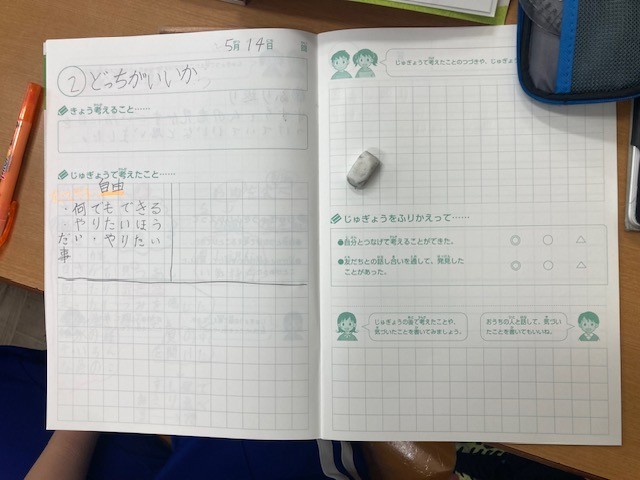 5月14日
② どっちがいいか
きょう考えること……
じゅぎょうで考えたこと……
自由
・何でもできる
・やりたいほう
だい・やりたい
事
じゅぎょうで考えたことのつづきや、じゅぎょ
じゅぎょうをふりかえって……
●自分とつなげて考えることができた。 ◎ ○ △
●友だちとの話し合いを通して、発見した
ことがあった。 ◎ ○ △
じゅぎょうの後で考えたことや、
気づいたことを書いてみましょう。
おうちの人と話して、気づい
たことを書いてもいいね。